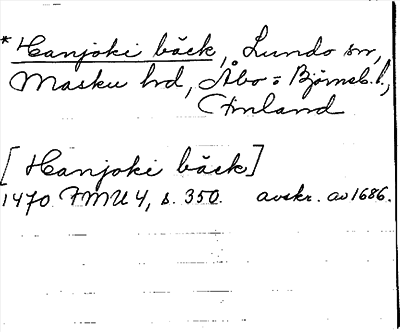 * Hanjoki bäck, Lundo sn,
Masku hd, Åbo = Björneb. l.,
Finland
[Hanjoki bäck]
1470 FMU 4, s. 350. avskr. av 1686.